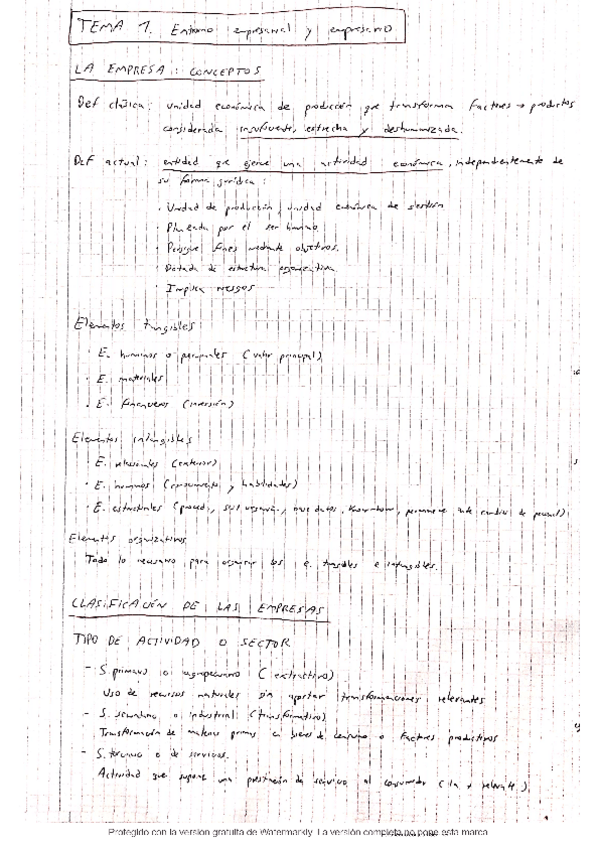 TEMA 1. Entorno empresarial y empresario
LA EMPRESA: CONCEPTOS
Def clásica: unidad económica de producción que transforma factores → productos
considerada insuficiente, estrecha y deshumanizada.
Def actual: entidad que ejerce una actividad económica, independientemente de
su forma jurídica:
· Unidad de producción, unidad económica de gestión
· Planeada por el ser humano
· Persigue fines mediante objetivos.
· Dotada de estructura organizativa
· Implica riesgos
Elementos tangibles
· E. humanos o personales (valor principal)
· E. materiales
· E. financieros (inversión)
Elementos intangibles
E. relacionales (exterior)
· E. humanos (conocimiento y habilidades)
· E. estructurales (proced., base datos, know-how, permanece ante cambios de personal)
Elementos organizativos
Todo lo necesario para organizar los e. tangibles e intangibles.
CLASIFICACIÓN DE LAS EMPRESAS
TIPO DE ACTIVIDAD O SECTOR
- S. primario o agropecuario (extractivo)
Uso de recursos naturales sin aportar transformaciones relevantes
- S. secundario o industrial (transformativo)
Transformación de materias primas en bienes de consumo o factores productivos
- S. terciario o de servicios.
Actividad que supone una prestación de servicio al consumidor (la + relevante).
Protegido con la versión gratuita de Watermarkly. La versión completa no pone esta marca